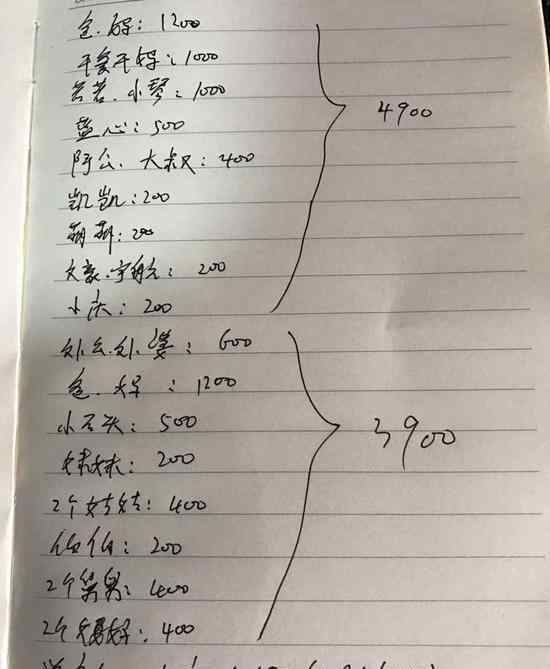 爸.妈: 1200
干爹干妈: 1000
爷爷.小琴: 1000
蓝心: 500
阿公.大叔: 400
凯凯: 200
萌萌: 200
文豪.宇航: 200
小庆: 200
4900
外公.外婆: 600
爸.妈: 1200
小石头: 500
妹妹: 200
2个姑姑: 400
伯伯: 200
2个舅舅: 400
2个舅妈: 400
3900